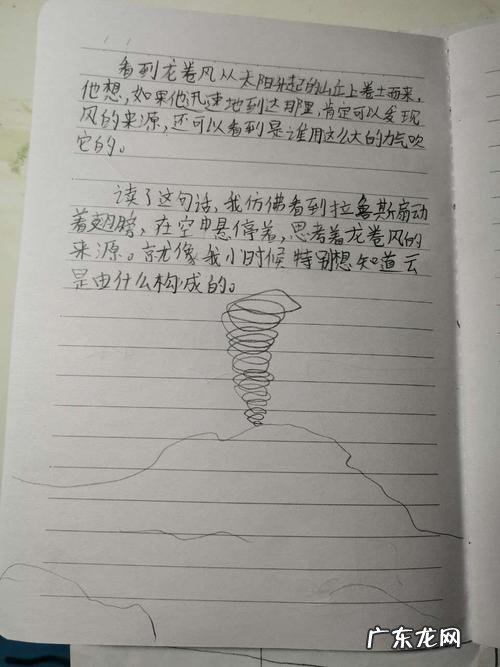 看到龙卷风从太阳升起的山丘上卷土而来,
他想,如果他迅速地到达那里,肯定可以发现
风的来源,还可以看到是谁用这么大的力气吹
它的。
读了这句话,我仿佛看到拉鲁斯扇动
着翅膀,在空中悬停着,思考着龙卷风的
来源。就像我小时候特别想知道云
是由什么构成的。
广东龙网